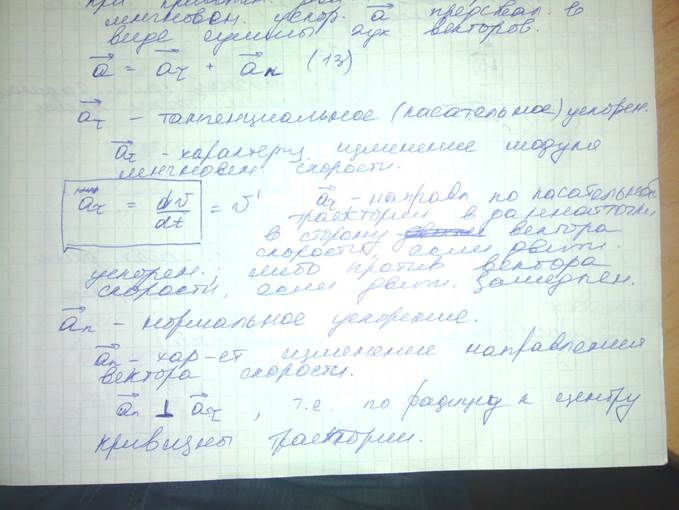 при
мгновен. ускор. a⃗ представл. в
виде суммы двух векторов.
a⃗ = a⃗τ + a⃗n (13)
a⃗τ – тангенциальное (касательное) ускорен.
a⃗τ – характериз. изменение модуля
мгновен. скорости.
aτ = dv/dt = v' a⃗τ – направл по касательной
траектории в данной точки
в сторону вектора
скорости, если движ.
ускорен., либо против вектора
скорости, если движ. замедлен.
a⃗n – нормальное ускорение.
a⃗n – хар-ет изменение направления
вектора скорости.
a⃗n ⊥ a⃗τ, т.е. по радиусу к центру
кривизны траектории.